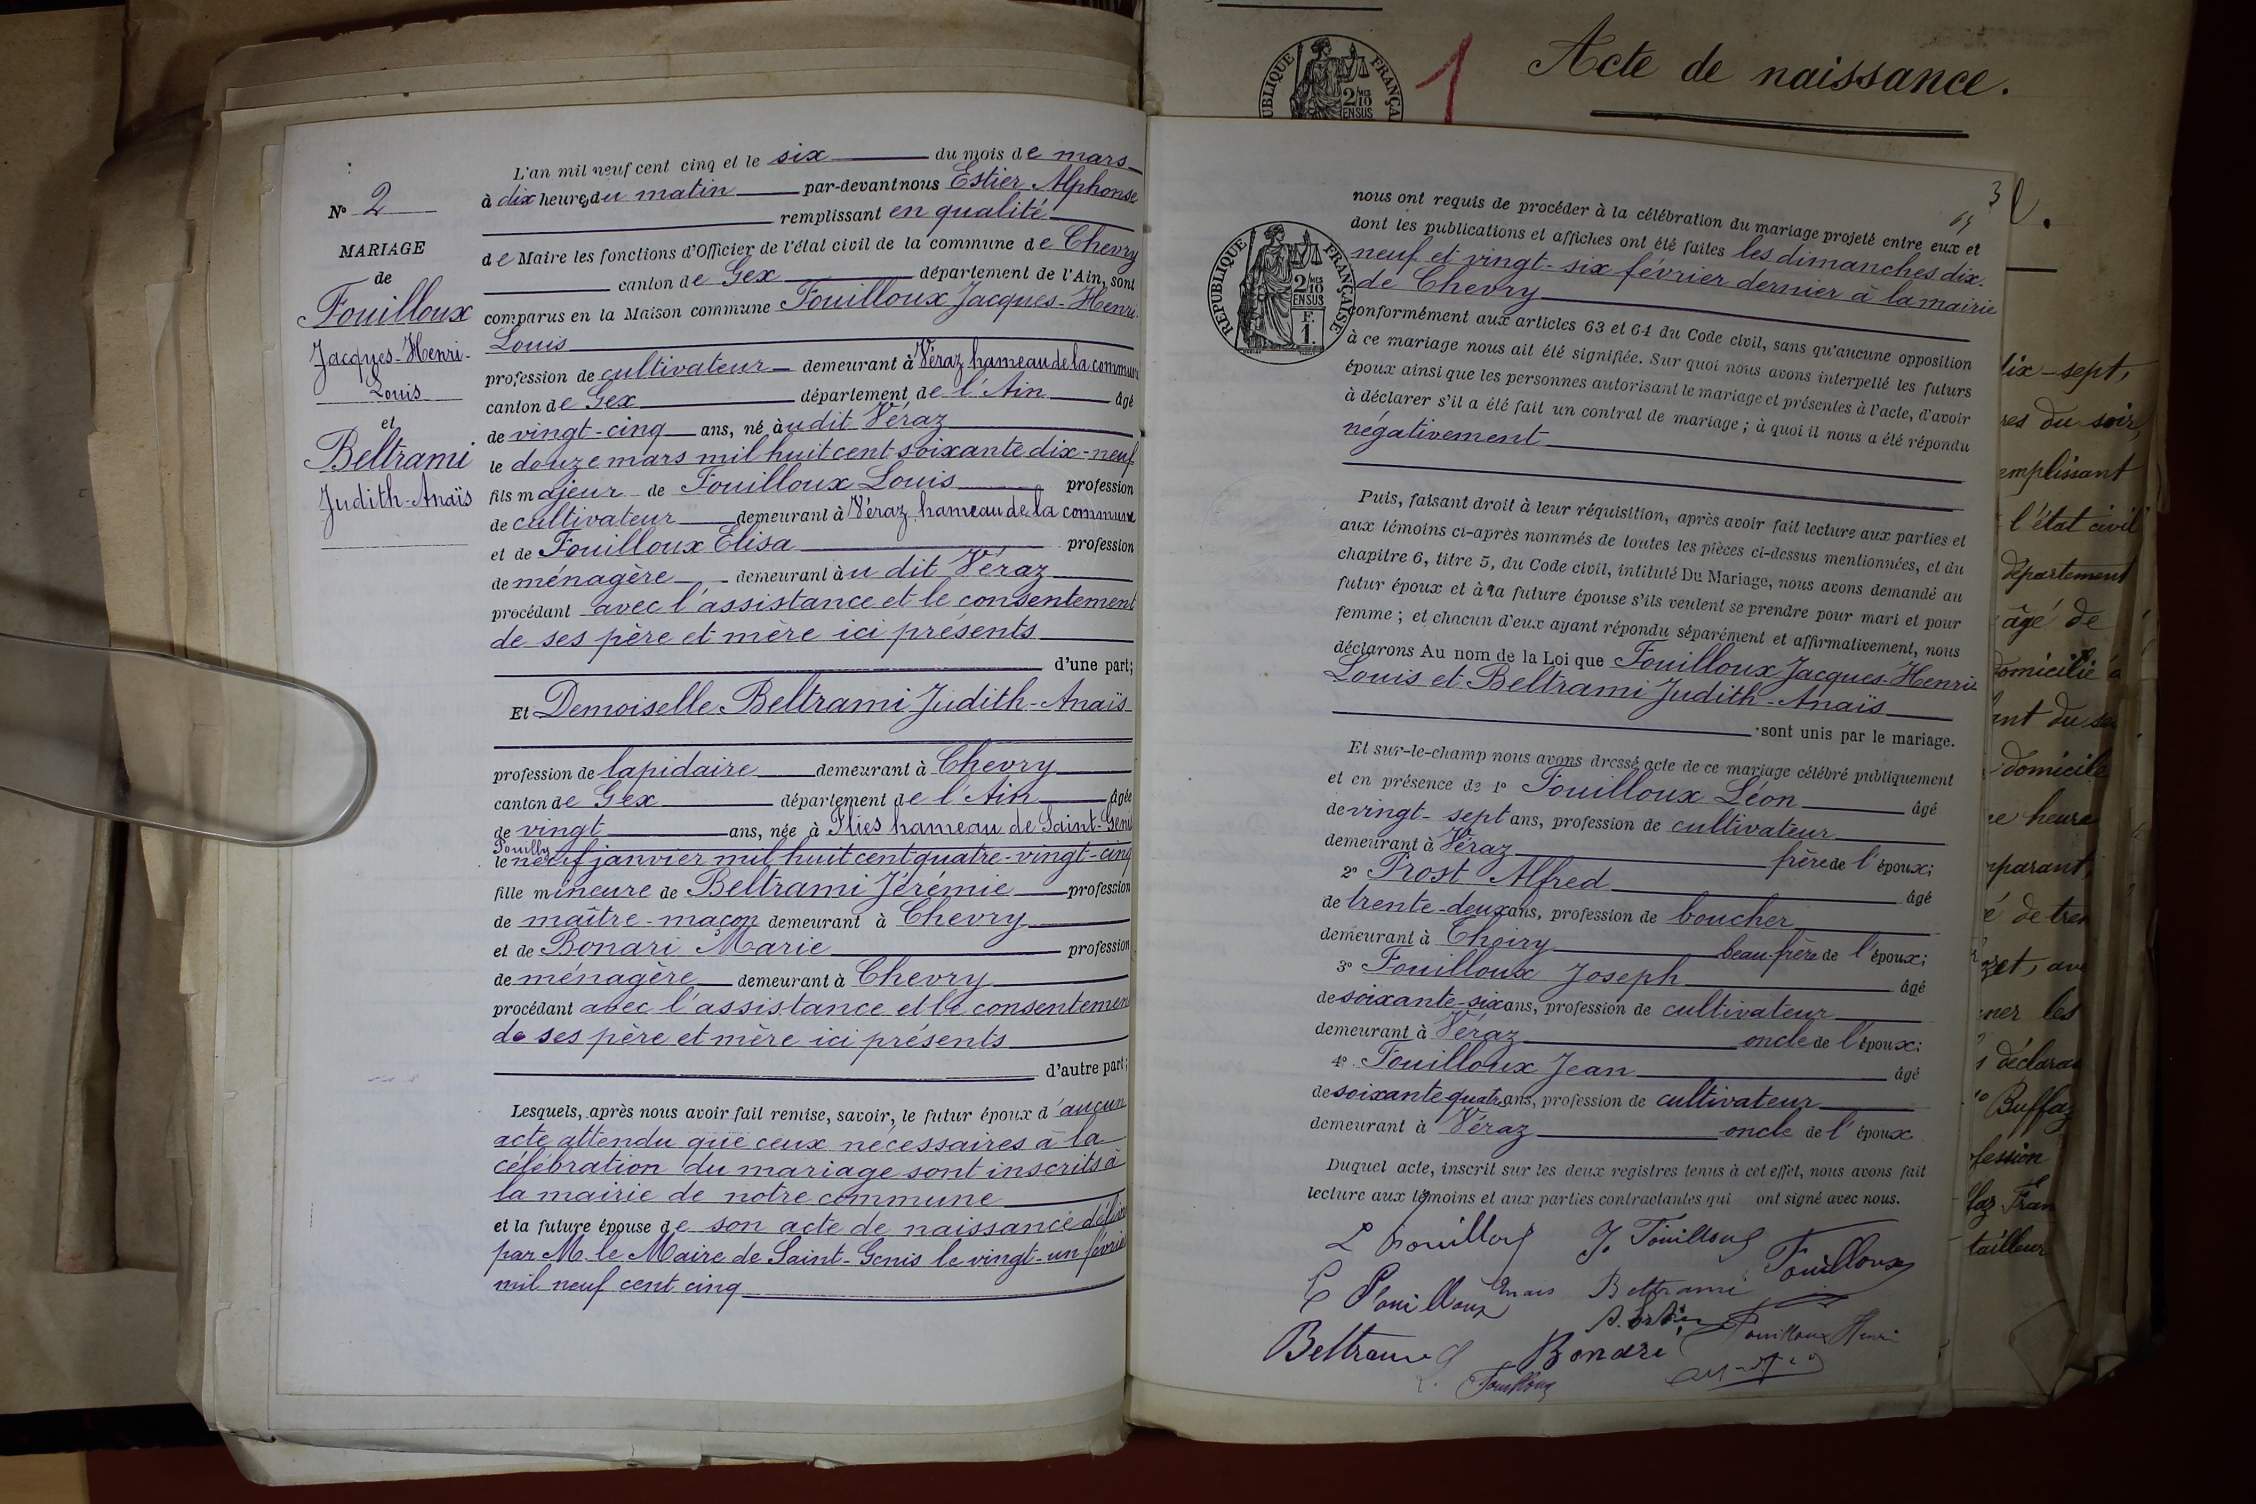 L'an mil neuf cent cinq et le six du mois de mars
à dix heures du matin par-devant nous Estier Alphonse
remplissant en qualité
de Maire les fonctions d'Officier de l'état civil de la commune de Chevry
canton de Gex département de l'Ain, sont
comparus en la Maison commune Fouilloux Jacques-Henri-
Louis
profession de cultivateur demeurant à Véraz hameau de la commune
canton de Gex département de l'Ain âgé
de vingt-cinq ans, né à u dit Véraz
le douze mars mil huit cent soixante dix-neuf
fils majeur de Fouilloux Louis profession
de cultivateur demeurant à Véraz hameau de la commune
et de Fouilloux Elisa profession
de ménagère demeurant à u dit Véraz
procédant avec l'assistance et le consentement
de ses père et mère ici présents
d'une part;
Et Demoiselle Beltrami Judith-Anaïs
profession de lapidaire demeurant à Chevry
canton de Gex département de l'Ain âgée
de vingt ans, née à Flies hameau de Saint-Genis
Pouilly
le neuf janvier mil huit cent quatre-vingt-cinq
fille mineure de Beltrami Jérémie profession
de maître-maçon demeurant à Chevry
et de Bonari Marie profession
de ménagère demeurant à Chevry
procédant avec l'assistance et le consentement
de ses père et mère ici présents
d'autre part;
Lesquels, après nous avoir fait remise, savoir, le futur époux d'aucun
acte attendu que ceux nécessaires à la
célébration du mariage sont inscrits à
la mairie de notre commune
et la future épouse de son acte de naissance délivré
par M. le Maire de Saint-Genis le vingt-un février
mil neuf cent cinq
N° 2
MARIAGE
de
Fouilloux
Jacques-Henri-
Louis
et
Beltrami
Judith-Anaïs
1 Acte de naissance.
RÉPUBLIQUE FRANÇAISE
2/10 EN SUS
F. 1.
3
nous ont requis de procéder à la célébration du mariage projeté entre eux et
dont les publications et affiches ont été faites les dimanches dix-
neuf et vingt-six février dernier à la mairie
de Chevry
conformément aux articles 63 et 64 du Code civil, sans qu'aucune opposition
à ce mariage nous ait été signifiée. Sur quoi nous avons interpellé les futurs
époux ainsi que les personnes autorisant le mariage et présentes à l'acte, d'avoir
à déclarer s'il a été fait un contrat de mariage; à quoi il nous a été répondu
négativement
Puis, faisant droit à leur réquisition, après avoir fait lecture aux parties et
aux témoins ci-après nommés de toutes les pièces ci-dessus mentionnées, et du
chapitre 6, titre 5, du Code civil, intitulé Du Mariage, nous avons demandé au
futur époux et à la future épouse s'ils veulent se prendre pour mari et pour
femme; et chacun d'eux ayant répondu séparément et affirmativement, nous
déclarons Au nom de la Loi que Fouilloux Jacques-Henri-
Louis et Beltrami Judith-Anaïs
sont unis par le mariage.
Et sur-le-champ nous avons dressé acte de ce mariage célébré publiquement
et en présence de 1° Fouilloux Léon âgé
de vingt-sept ans, profession de cultivateur
demeurant à Véraz frère de l'époux;
2° Prost Alfred âgé
de trente-deux ans, profession de boucher
demeurant à Thoiry beau-frère de l'époux;
3° Fouilloux Joseph âgé
de soixante-six ans, profession de cultivateur
demeurant à Véraz oncle de l'époux;
4° Fouilloux Jean âgé
de soixante quatre ans, profession de cultivateur
demeurant à Véraz oncle de l'époux
Duquel acte, inscrit sur les deux registres tenus à cet effet, nous avons fait
lecture aux témoins et aux parties contractantes qui ont signé avec nous.
L Fouilloux J. Fouilloux Fouilloux
E Fouilloux Anais Beltrami
Fouilloux Henri
Beltrami Bonari
Fouilloux
dix-sept,
res du soir,
emplissant
l'état civil
département
âgé de
domicilié à
domicile
ne heure
mparant,
é de tren
ner les
s déclara
Buffaz
fession
laz Fran
tailleur